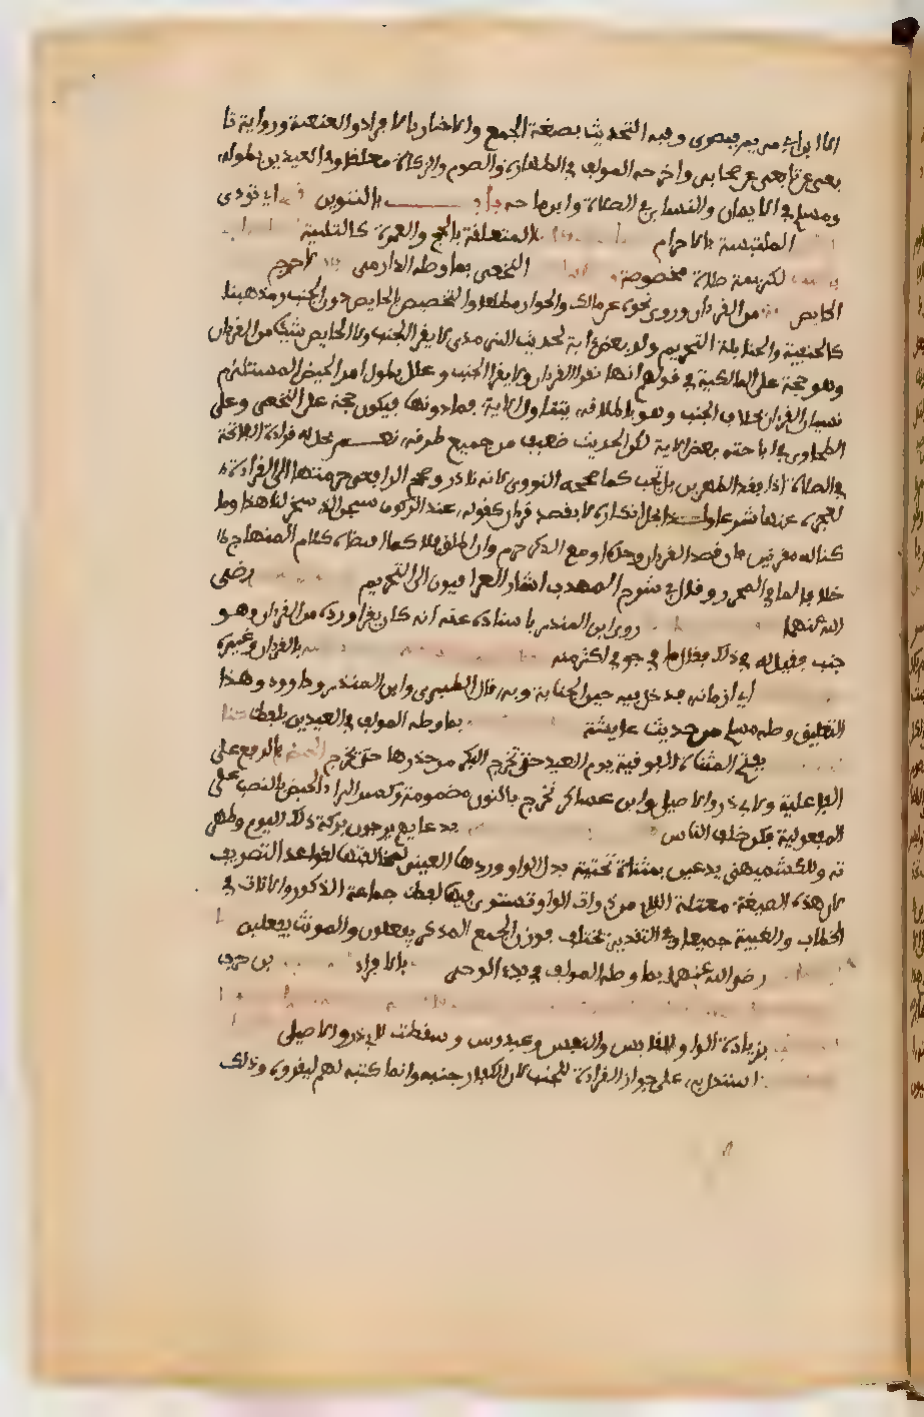 الا ابن ابى مريم فبصرى وفيه التحديث بصيغة الجمع والاخبار بالافراد والعنعنة ورواية تا
بعى عن تابعى عن صحابى واخرجه المولف في الطهارة والصوم والزكاة مقطعا وفي العيدين بطوله
ومسلم في الايمان والنساى في الصلاة وابن ماجه باب بالتنوين اى تودى
الملتبسة بالاحرام المتعلقة بالحج والعمرة كالتلبية
لكن بهذه صلاة مخصوصة النخعى بما وصله الدارمى لا حرج
الحايض من القران وروى نحوه عن مالك والجواز مطلقا والتخصيص بالحايض دون الجنب ومذهبنا
كالحنفية والحنابلة التحريم ولو بعض اية لحديث الترمذى لا يقرا الجنب ولا الحايض شيئا من القران
وهو حجة على المالكية في قولهم انها تقرا القران ولا يقرا الجنب وعلل بطول امد الحيض المستلزم
نسيان القران بخلاف الجنب وهو باطلاقه يتناول الاية فما دونها فيكون حجة على النخعى وعلى
الطحاوى في اباحته بعض الاية لكن الحديث ضعيف من جميع طرقه نعم يحل له قراءة الفاتحة
في الصلاة اذا فقد الطهورين بل تجب كما صححه النووى لانه نادر وصحح الرافعى حرمتها
لعجزه عنها شرعا وكذا تحل اذكاره لا بقصد قران كقوله عند الركوب سبحان الذى سخر لنا هذا وما
كنا له مقرنين فان قصد القران وحده او مع الذكر حرم وان اطلق فلا كما اقتضاه كلام المنهاج
خلافا لما في المحرر وقال في شرح المهذب اشار العراقيون الى التحريم رضى
الله عنهما روى ابن المنذر باسناده عنه انه كان يقرا ورده من القران وهو
جنب فقيل له في ذلك فقال ما في جوفي اكثر منه بالقران وغيره
اى ازمانه فدخل فيه حين الجنابة وبه قال الطبرى وابن المنذر وداوود وهذا
التعليق وصله مسلم من حديث عايشة بما وصله المولف في العيدين بلفظ كنا
بفتح المثناة الفوقية يوم العيد حتى تخرج البكر من خدرها حتى تخرج الحيض بالرفع على
الفاعلية ولابى ذر والاصيلى وابن عساكر نخرج بالنون مضمومة وكسر الراء الحيض بالنصب على
المفعولية فيكن خلف الناس بدعايهم يرجون بركة ذلك اليوم وطهر
ته وللكشميهنى يدعين بمثناة تحتية بدل الواو وردها العينى لمخالفتها لقواعد التصريف
لان هذه الصيغة معتلة اللام من ذوات الواو فتستوى فيها لفظ جماعة الذكور والاناث في
الخطاب والغيبة جميعا وفي التقدير مختلف فوزن الجمع المذكر يفعون والمونث يفعلن
رضى الله عنهما بما وصله المولف في بدء الوحى بالافراد بن حرب
بزيادة الواو للقابسى والنسفى وعبدوس وسقطت لابى ذر والاصيلى
استدل به على جواز القراءة للجنب لان الكفار جنب وانما كتب لهم ليقروه وذلك